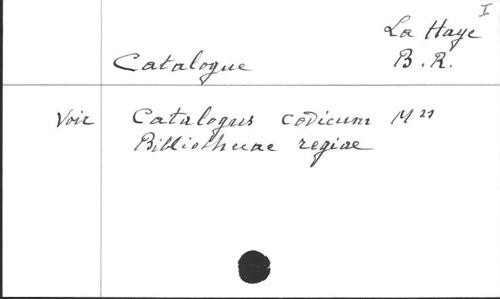 I
La Haye
Catalogue B.R.
Voir Catalogus codicum Mss
Bibliothecae regiae